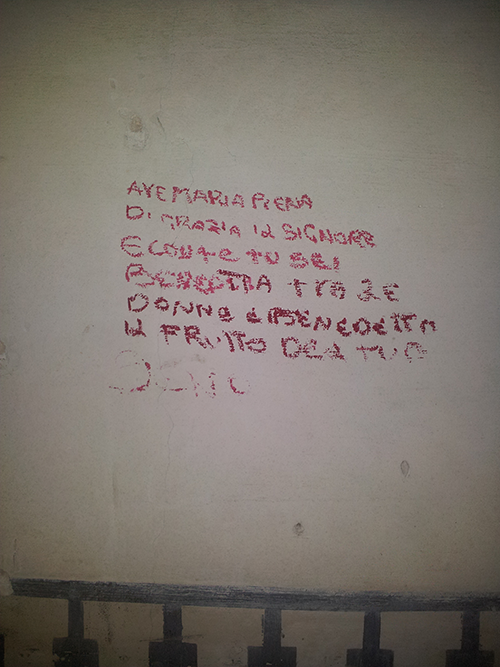 AVE MARIA PIENA
DI GRAZIA IL SIGNORE
E CON TE TU SEI
BENEDETTA TRA LE
DONNE E BENEDETTO
IL FRUTTO DEL TUO
SENO